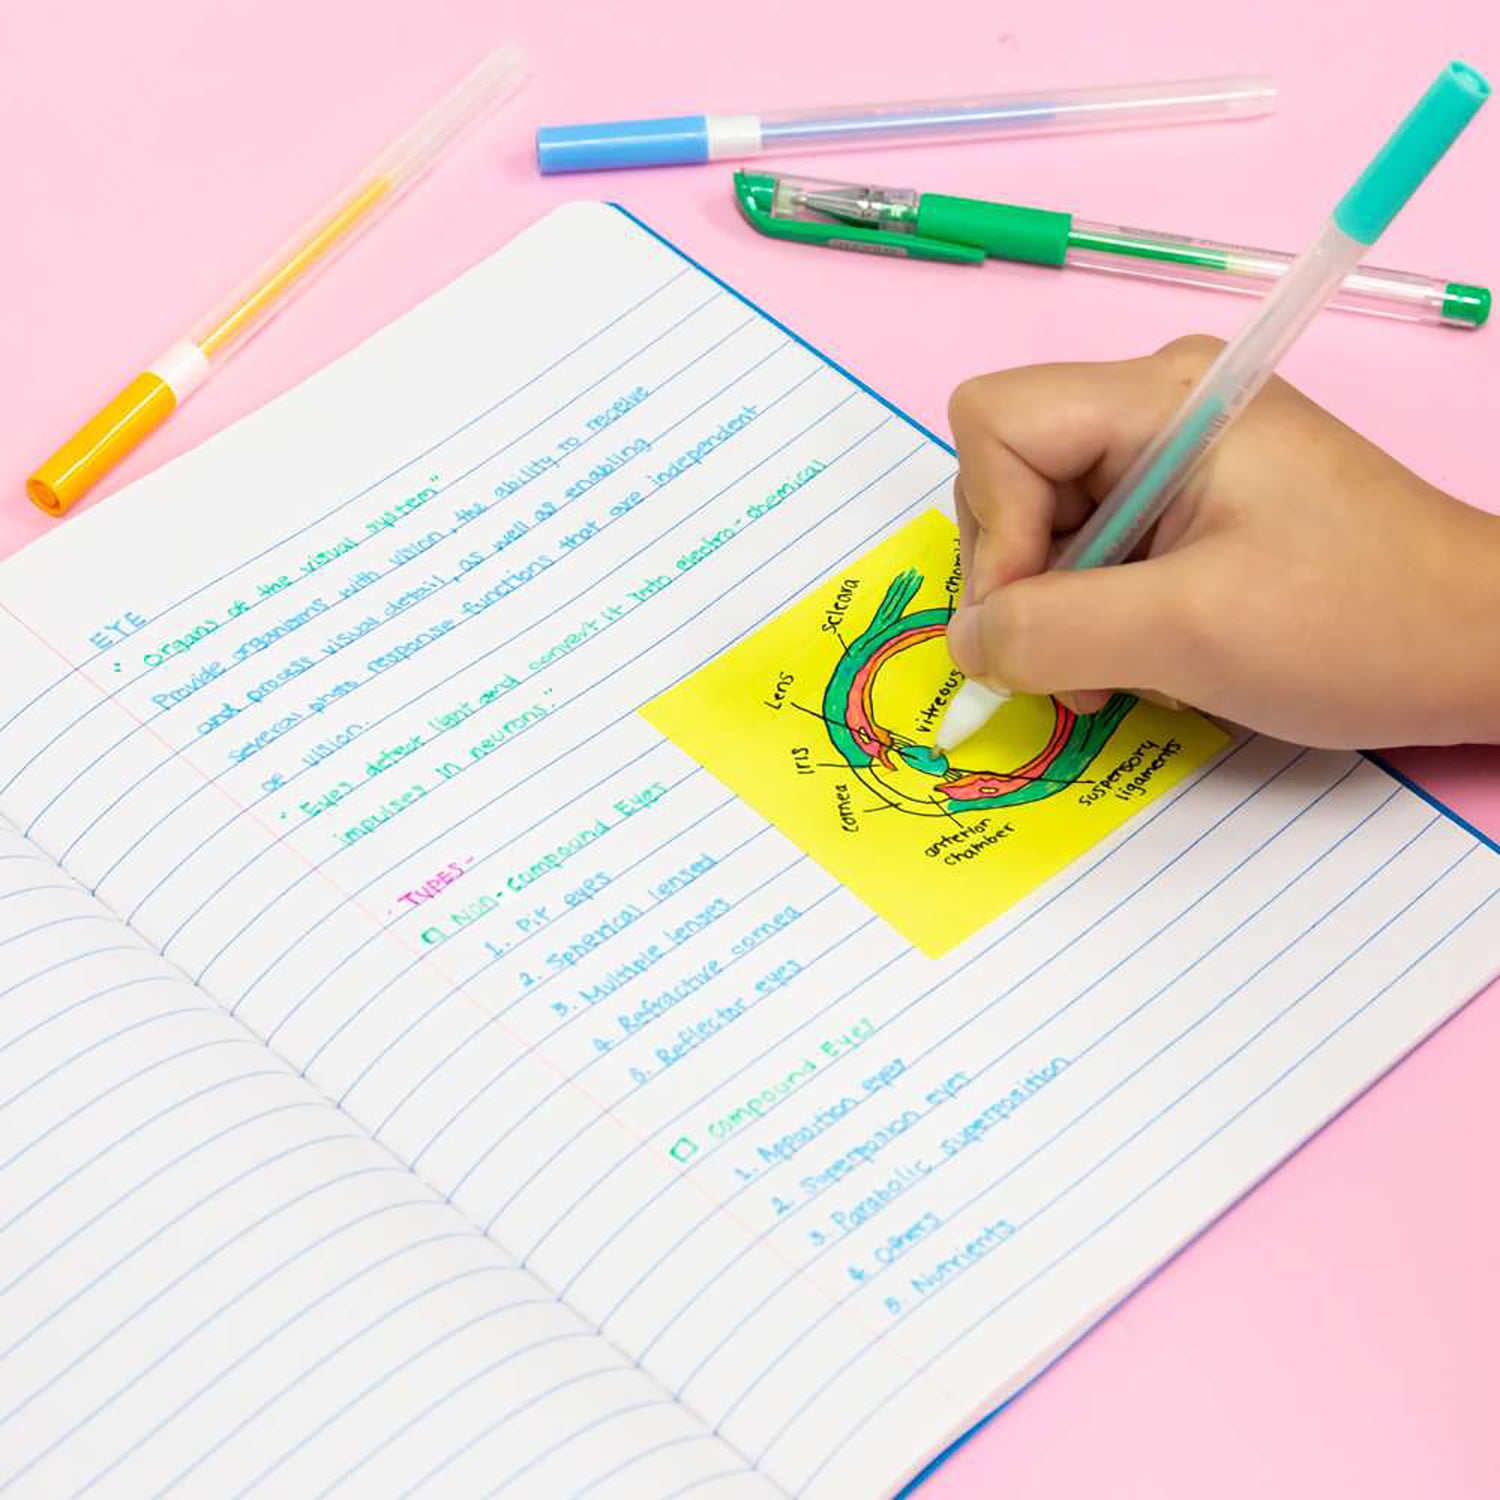 EYE
· Organs of the visual system"
Provide organisms with vision, the ability to receive
and process visual detail, as well as enabling
several photo response functions that are independent
of vision.
· Eyes detect light and convert it into electro-chemical
impulses in neurons."
· TYPES-
Non-compound Eyes
1. Pit eyes
2. Spherical lensed
3. Multiple lenses
4. Refractive cornea
5. Reflector eyes
compound Eyes
1. Apposition eyes
2. Superposion eyes
3. Parabolic superposition
4. Others
5. Nutrients
scleara
Lens
iris
cornea
anterior
chamber
suspensory
ligaments
vitreous